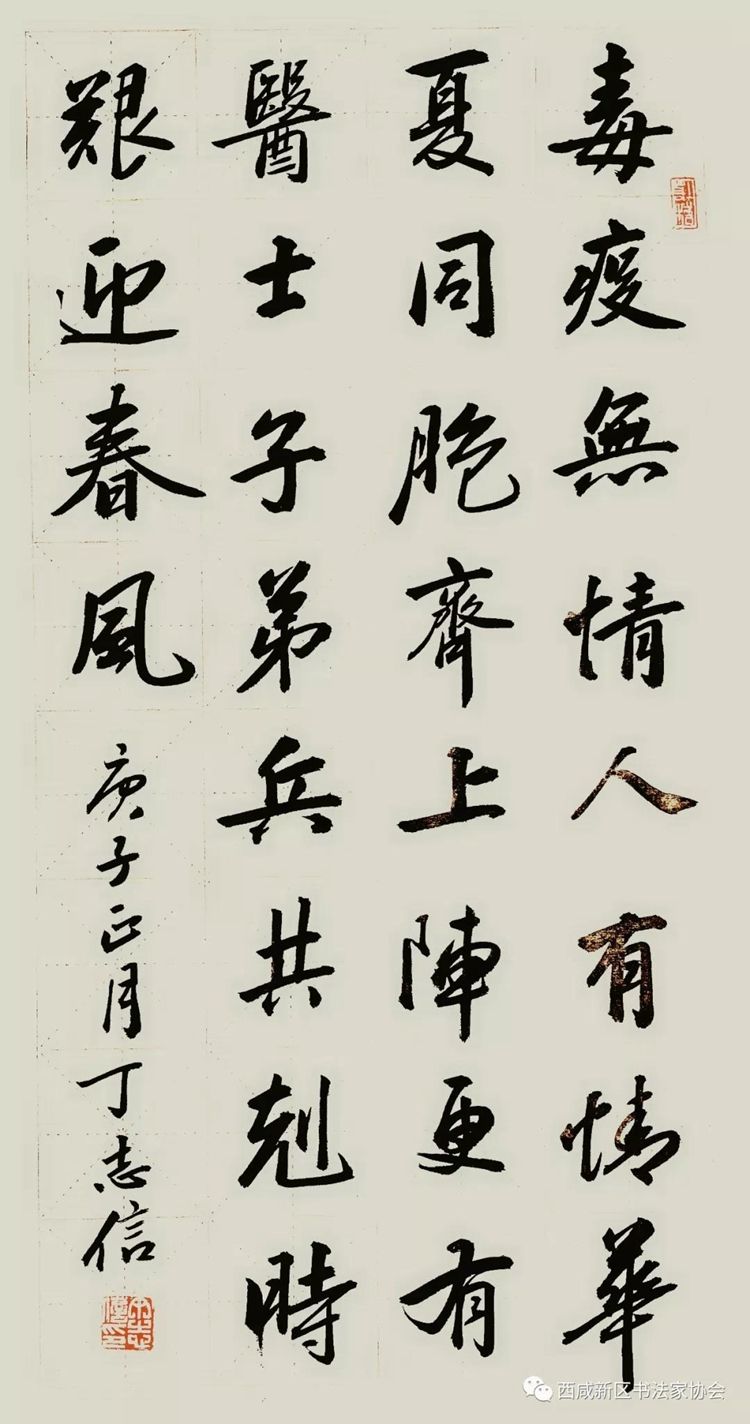 毒疫無情人有情華
夏同胞齊上陣更有
醫士子弟兵共剋時
艱迎春風
庚子正月丁志信
西咸新区书法家协会